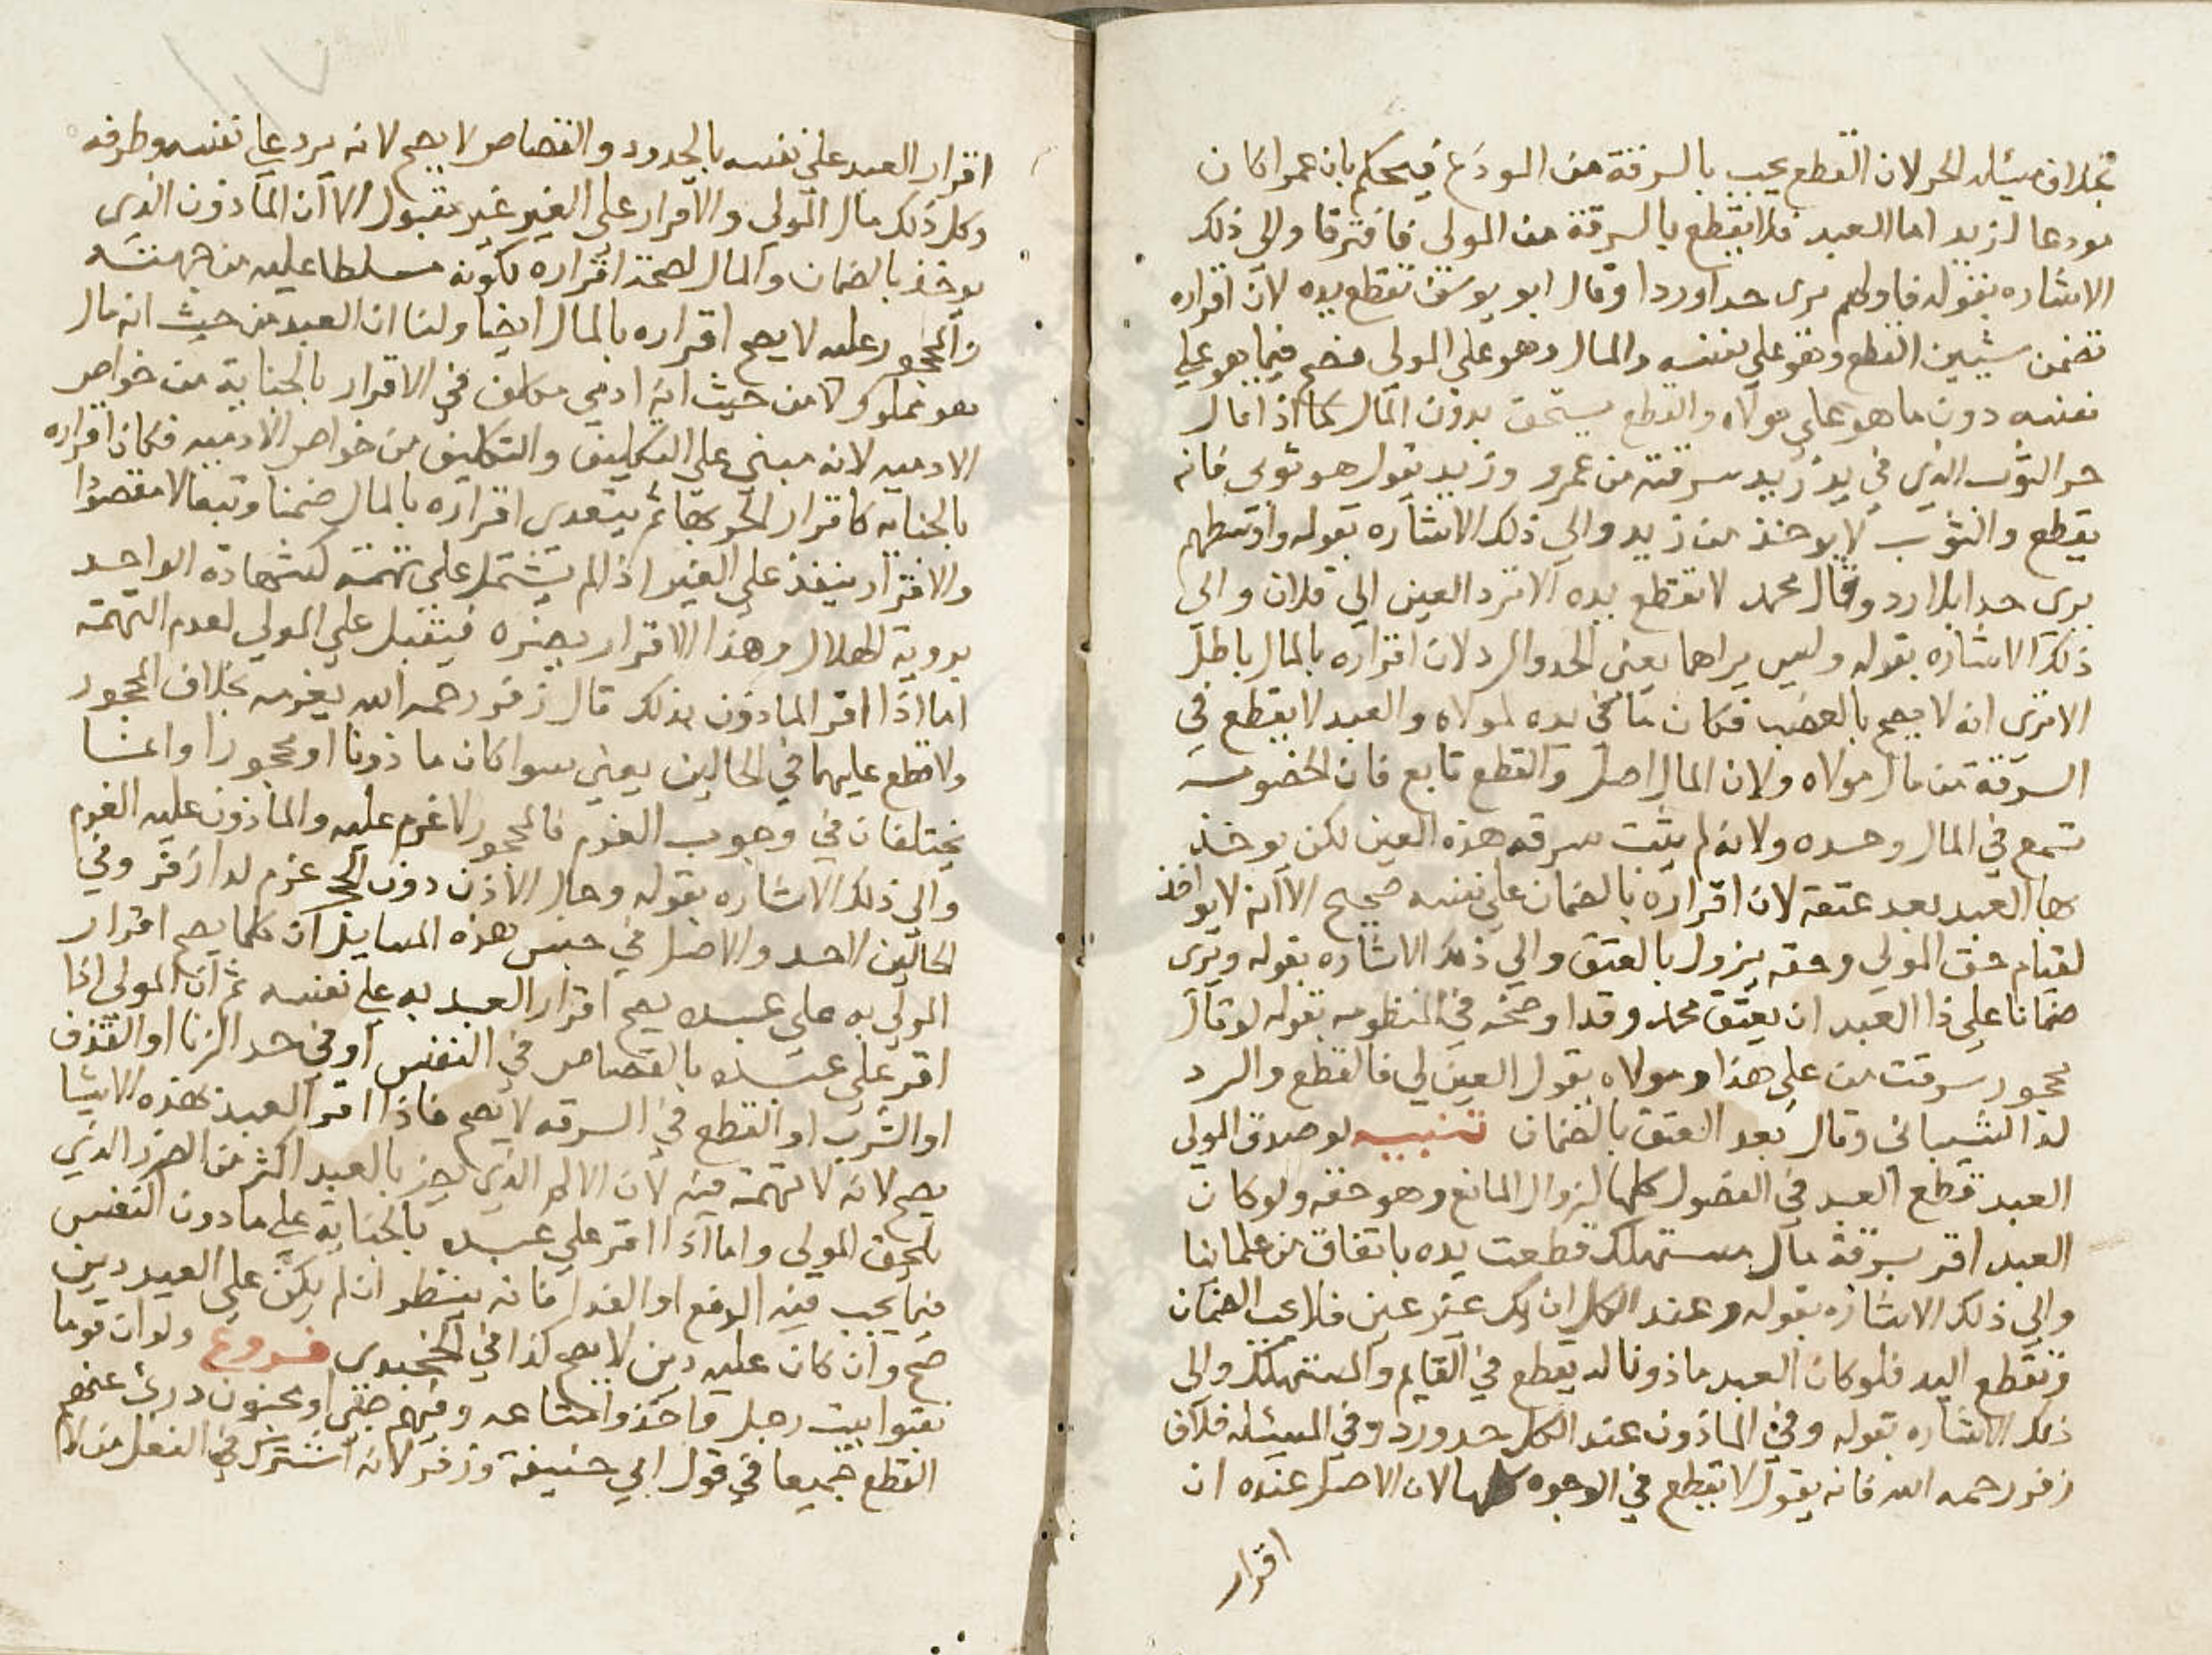 بخلاف مسئلة الحر لان القطع يجب بالسرقة من المودَع فيحكم بان عمرا كان
مودعا لزيد اما العبد فلا يقطع بالسرقة من المولى فافترقا والى ذلك
الاشاره بقوله فاولهم يرى حدا وردا وقال ابو يوسف تقطع يده لان اقراره
تضمن شيئين القطع وهو على نفسه والمال وهو على المولى فصح فيما هو على
نفسه دون ما هو على مولاه والقطع يستحق بدون المال كما اذا قال
حر الثوب الذي في يد زيد سرقته من عمرو وزيد يقول هو ثوبى فانه
يقطع والثوب لا يوخذ من زيد والي ذلك الاشاره بقوله واوسطهم
يرى حدا بلا رد وقال محمد لا تقطع يده الا ترد العين الي فلان والي
ذلك الاشاره بقوله وليس يراهما يعني الحد والرد لان اقراره بالمال باطل
الا ترى انه لا يصح بالغصب فكان ما في يده لمولاه والعبد لا يقطع في
السرقة من مال مولاه ولان المال اصل والقطع تابع فان الخصومه
تسمع في المال وحده ولانه لم يثبت سرقه هذه العين لكن يوخذ
بها العبد بعد عتقه لان اقراره بالضمان على نفسه صحيح الا انه لا يواخذ
لقيام حق المولي وحقه يزول بالعتق والي ذلك الاشاره بقوله ويرى
ضمانا على ذا العبد ان يعتق محمد وقد اوضحه في المنظومه بقوله لو قال
محجور سرقت من على هذا ومولاه يقول العين لي فالقطع والرد
لذا الشيبانى وقال بعد العتق بالضمان تنبيه لو صدق المولى
العبد قطع العبد في الفصول كلها لزوال المانع وهو حقه ولو كان
العبد اقر بسرقة مال مستهلك قطعت يده باتفاق من علمائنا
والي ذلك الاشاره بقوله وعند الكل ان يك غير عين فلا يجب الضمان
وتقطع اليد فلو كان العبد ماذونا له يقطع في القايم والمستهلك والى
ذلك الاشاره بقوله وفي الماذون عند الكل حد ورد وفي المسئله خلاف
زفر رحمه الله فانه يقول لا يقطع في الوجوه كلها لان الاصل عنده ان
اقرار
اقرار العبد على نفسه بالحدود والقصاص لا يصح لانه يرد على نفسه وطرفه
وكل ذلك مال المولى والاقرار على الغير غير مقبول الا ان الماذون الذى
يوخذ بالضمان والمال لصحة اقراره لكونه مسلطا عليه من جهته
والمحجور عليه لا يصح اقراره بالمال ايضا ولنا ان العبد من حيث انه مال
هو مملوك لا من حيث انه ادمي مكلف في الاقرار بالجناية من خواص
الادميه لانه مبني على التكليف والتكليف من خواص الادميه فكان اقراره
بالجنايه كاقرار الحر بها ثم يتعدى اقراره بالمال ضمنا وتبعا لا مقصودا
والاقرار ينفذ على الغير اذا لم يشتمل على تهمته كشهادة الواحد
بروية الهلال وهذا الاقرار يضره فيقبل علي المولي لعدم التهمة
اما اذا اقر الماذون بذلك قال زفر رحمه الله يغرمه بخلاف المحجور
ولا قطع عليهما في الحالين يعني سوا كان ماذونا او محجورا وانما
يختلفان في وجوب الغرم فالمحجور لا غرم عليه والماذون عليه الغرم
والي ذلك الاشاره بقوله وحال الاذن دون الحجر غرم لدا زفر وفي
الحالين لا حد والاصل في جنس هذه المسايل ان كلما يصح اقرار
المولي به علي عبده يصح اقرار العبد به على نفسه ثم ان المولى اذا
اقر على عبده بالقصاص في النفس او في حد الزنا او القذف
او الشرب او القطع في السرقه لا يصح فاذا اقر العبد بهذه الاشيا
يصح لانه لا تهمة فيه لان الالم الذي يضر بالعبد اكثر من الضرر الذي
يلحق المولى واما اذا اقر علي عبده بالجناية على ما دون النفس
فيما يجب فيه الدفع او الفدا فانه ينظر ان لم يكن على العبد دين
صح وان كان عليه دين لا يصح كذا في الخجندى فروع ولو ان قوما
نقبوا بيت رجل فاخذوا متاعه وفيهم صبي او مجنون درئ عنهم
القطع جميعا في قول ابي حنيفة وزفر لانه اشترك في الفعل من لا